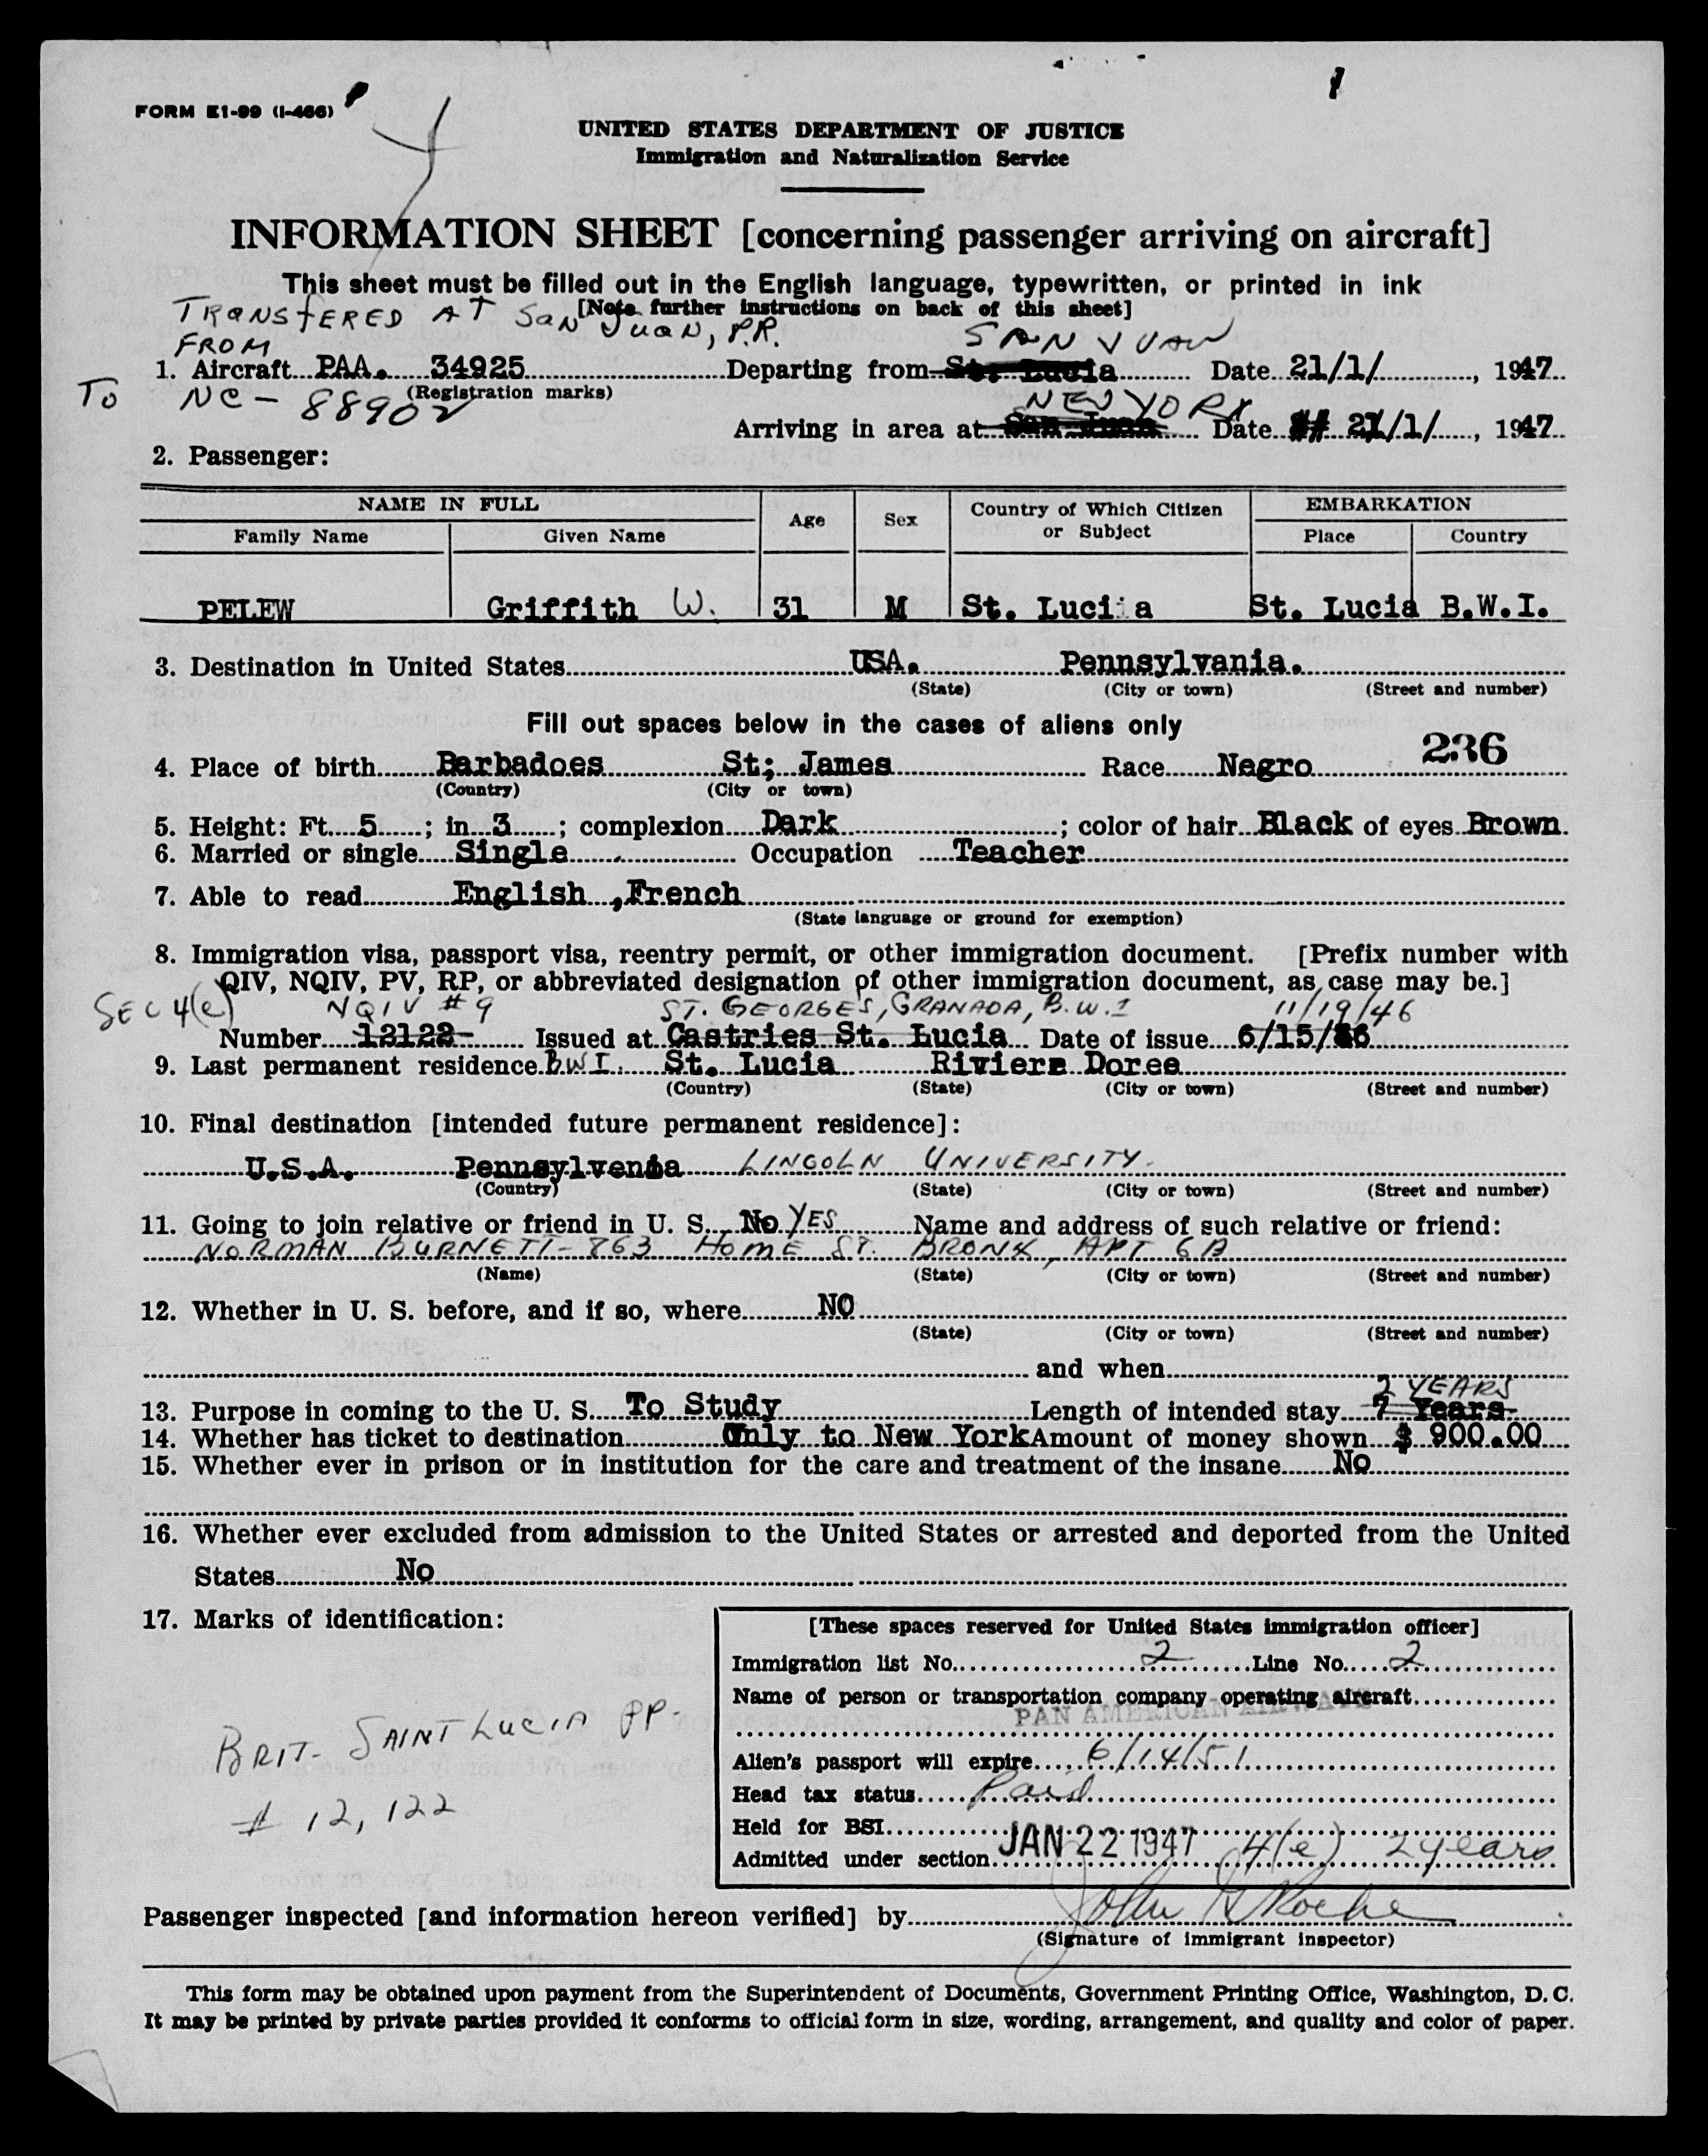 FORM E1-99 (I-466)
UNITED STATES DEPARTMENT OF JUSTICE
Immigration and Naturalization Service
INFORMATION SHEET [concerning passenger arriving on aircraft]
This sheet must be filled out in the English language, typewritten, or printed in ink
[Note further instructions on back of this sheet]
TRANSFERED AT SAN JUAN, P.R.
FROM SAN JUAN
1. Aircraft PAA. 34925 Departing from St. Lucia Date 21/1/, 1947
(Registration marks)
TO NC-88902 NEW YORK
Arriving in area at San Juan Date 21/1/, 1947
2. Passenger:
NAME IN FULL Age Sex Country of Which Citizen or Subject EMBARKATION
Family Name Given Name Place Country
PELEW Griffith W. 31 M St. Lucia St. Lucia B.W.I.
3. Destination in United States USA. Pennsylvania.
(State) (City or town) (Street and number)
Fill out spaces below in the cases of aliens only
236
4. Place of birth Barbadoes St; James Race Negro
(Country) (City or town)
5. Height: Ft. 5; in. 3; complexion Dark; color of hair Black of eyes Brown.
6. Married or single Single Occupation Teacher
7. Able to read English ,French
(State language or ground for exemption)
8. Immigration visa, passport visa, reentry permit, or other immigration document. [Prefix number with
QIV, NQIV, PV, RP, or abbreviated designation of other immigration document, as case may be.]
SEC 4(e) NQIV #9 ST. GEORGES, GRANADA, B.W.I 11/19/46
Number 12122- Issued at Castries St. Lucia Date of issue 6/15/46
9. Last permanent residence BWI. St. Lucia Riviere Doree
(Country) (State) (City or town) (Street and number)
10. Final destination [intended future permanent residence]:
U.S.A. Pennsylvenia LINCOLN UNIVERSITY.
(Country) (State) (City or town) (Street and number)
11. Going to join relative or friend in U. S. No YES Name and address of such relative or friend:
NORMAN BURNETT - 863 HOME ST. BRONX, APT 6B
(Name) (State) (City or town) (Street and number)
12. Whether in U. S. before, and if so, where NO
(State) (City or town) (Street and number)
and when
2 YEARS
13. Purpose in coming to the U. S. To Study Length of intended stay 7 Years
14. Whether has ticket to destination Only to New York Amount of money shown $ 900.00
15. Whether ever in prison or in institution for the care and treatment of the insane No
16. Whether ever excluded from admission to the United States or arrested and deported from the United
States No
17. Marks of identification:
BRIT- SAINT LUCIA PP-
# 12,122
[These spaces reserved for United States immigration officer]
Immigration list No. 2 Line No. 2
Name of person or transportation company operating aircraft
PAN AMERICAN AIRWAYS
Alien's passport will expire 6/14/51
Head tax status Paid
Held for BSI
Admitted under section JAN 22 1947 4(e) 2 years
Passenger inspected [and information hereon verified] by John Roche
(Signature of immigrant inspector)
This form may be obtained upon payment from the Superintendent of Documents, Government Printing Office, Washington, D. C.
It may be printed by private parties provided it conforms to official form in size, wording, arrangement, and quality and color of paper.